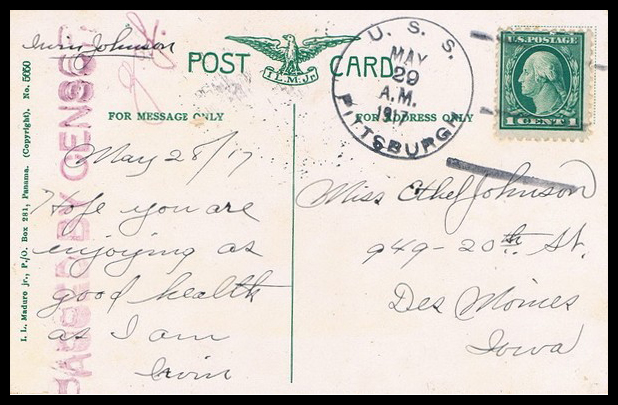 Irvin Johnson
POST CARD
I.L.M.Jr.
FOR MESSAGE ONLY
FOR ADDRESS ONLY
U. S. S.
MAY
29
A.M.
1917
PITTSBURGH
U.S. POSTAGE
1 CENT 1
PASSED BY CENSOR
I. L. Maduro jr., P./O. Box 281, Panama. (Copyright). No. 5660
May 28/17
Hope you are
enjoying as
good health
as I am
Irvin
Miss Ethel Johnson
949-20th St.
Des Moines
Iowa